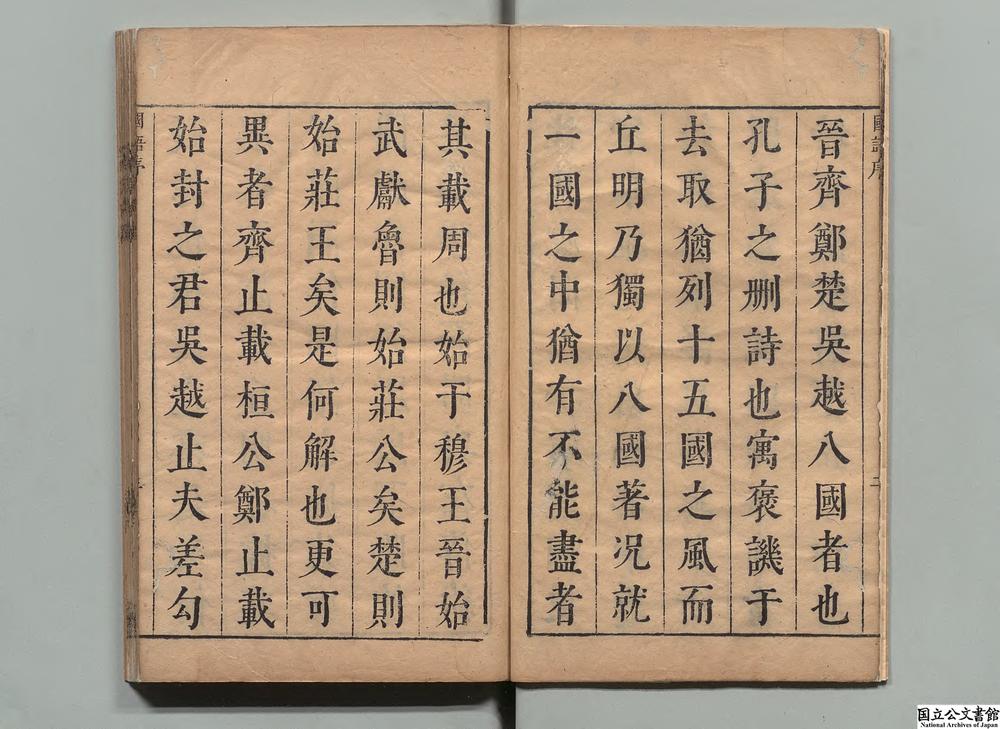 晉齊鄭楚吳越八國者也
孔子之刪詩也寓褒譏于
去取猶列十五國之風而
丘明乃獨以八國著况就
一國之中猶有不能盡者
其載周也始于穆王晉始
武獻魯則始莊公矣楚則
始莊王矣是何解也更可
異者齊止載桓公鄭止載
始封之君吳越止夫差勾
國語序
国立公文書館
National Archives of Japan